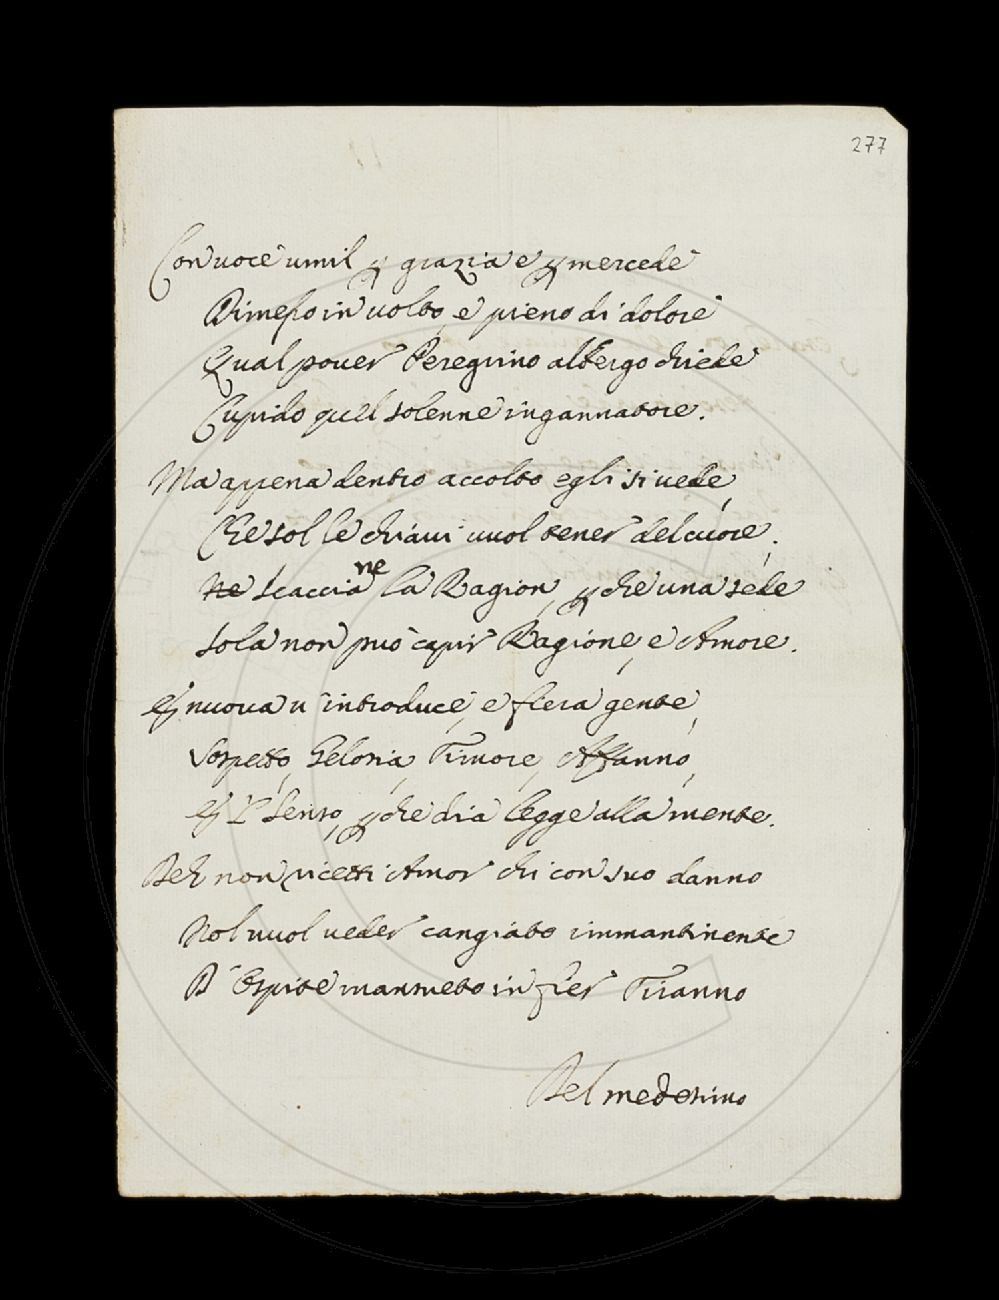 277
Con voce umil p grazia e p mercede
Dimesso in volto, e pieno di dolore
Qual pover Peregrino albergo chiede
Cupido quel solenne ingannatore.
Ma appena dentro accolto egli si vede,
Che sol le chiavi vuol tener del cuore;
Ne Scaccia ne la Ragion, p che una sede
Sola non può capir Ragione, e Amore.
E nuova v'introduce, e fiera gente,
Sospetto, Gelosia, Timore, Affanno,
E 'l Senso, p che dia legge alla mente.
Deh non ricetti Amor chi con suo danno
Nol vuol veder cangiato immantinente
D'Ospite mansueto in fier Tiranno
Del medesimo